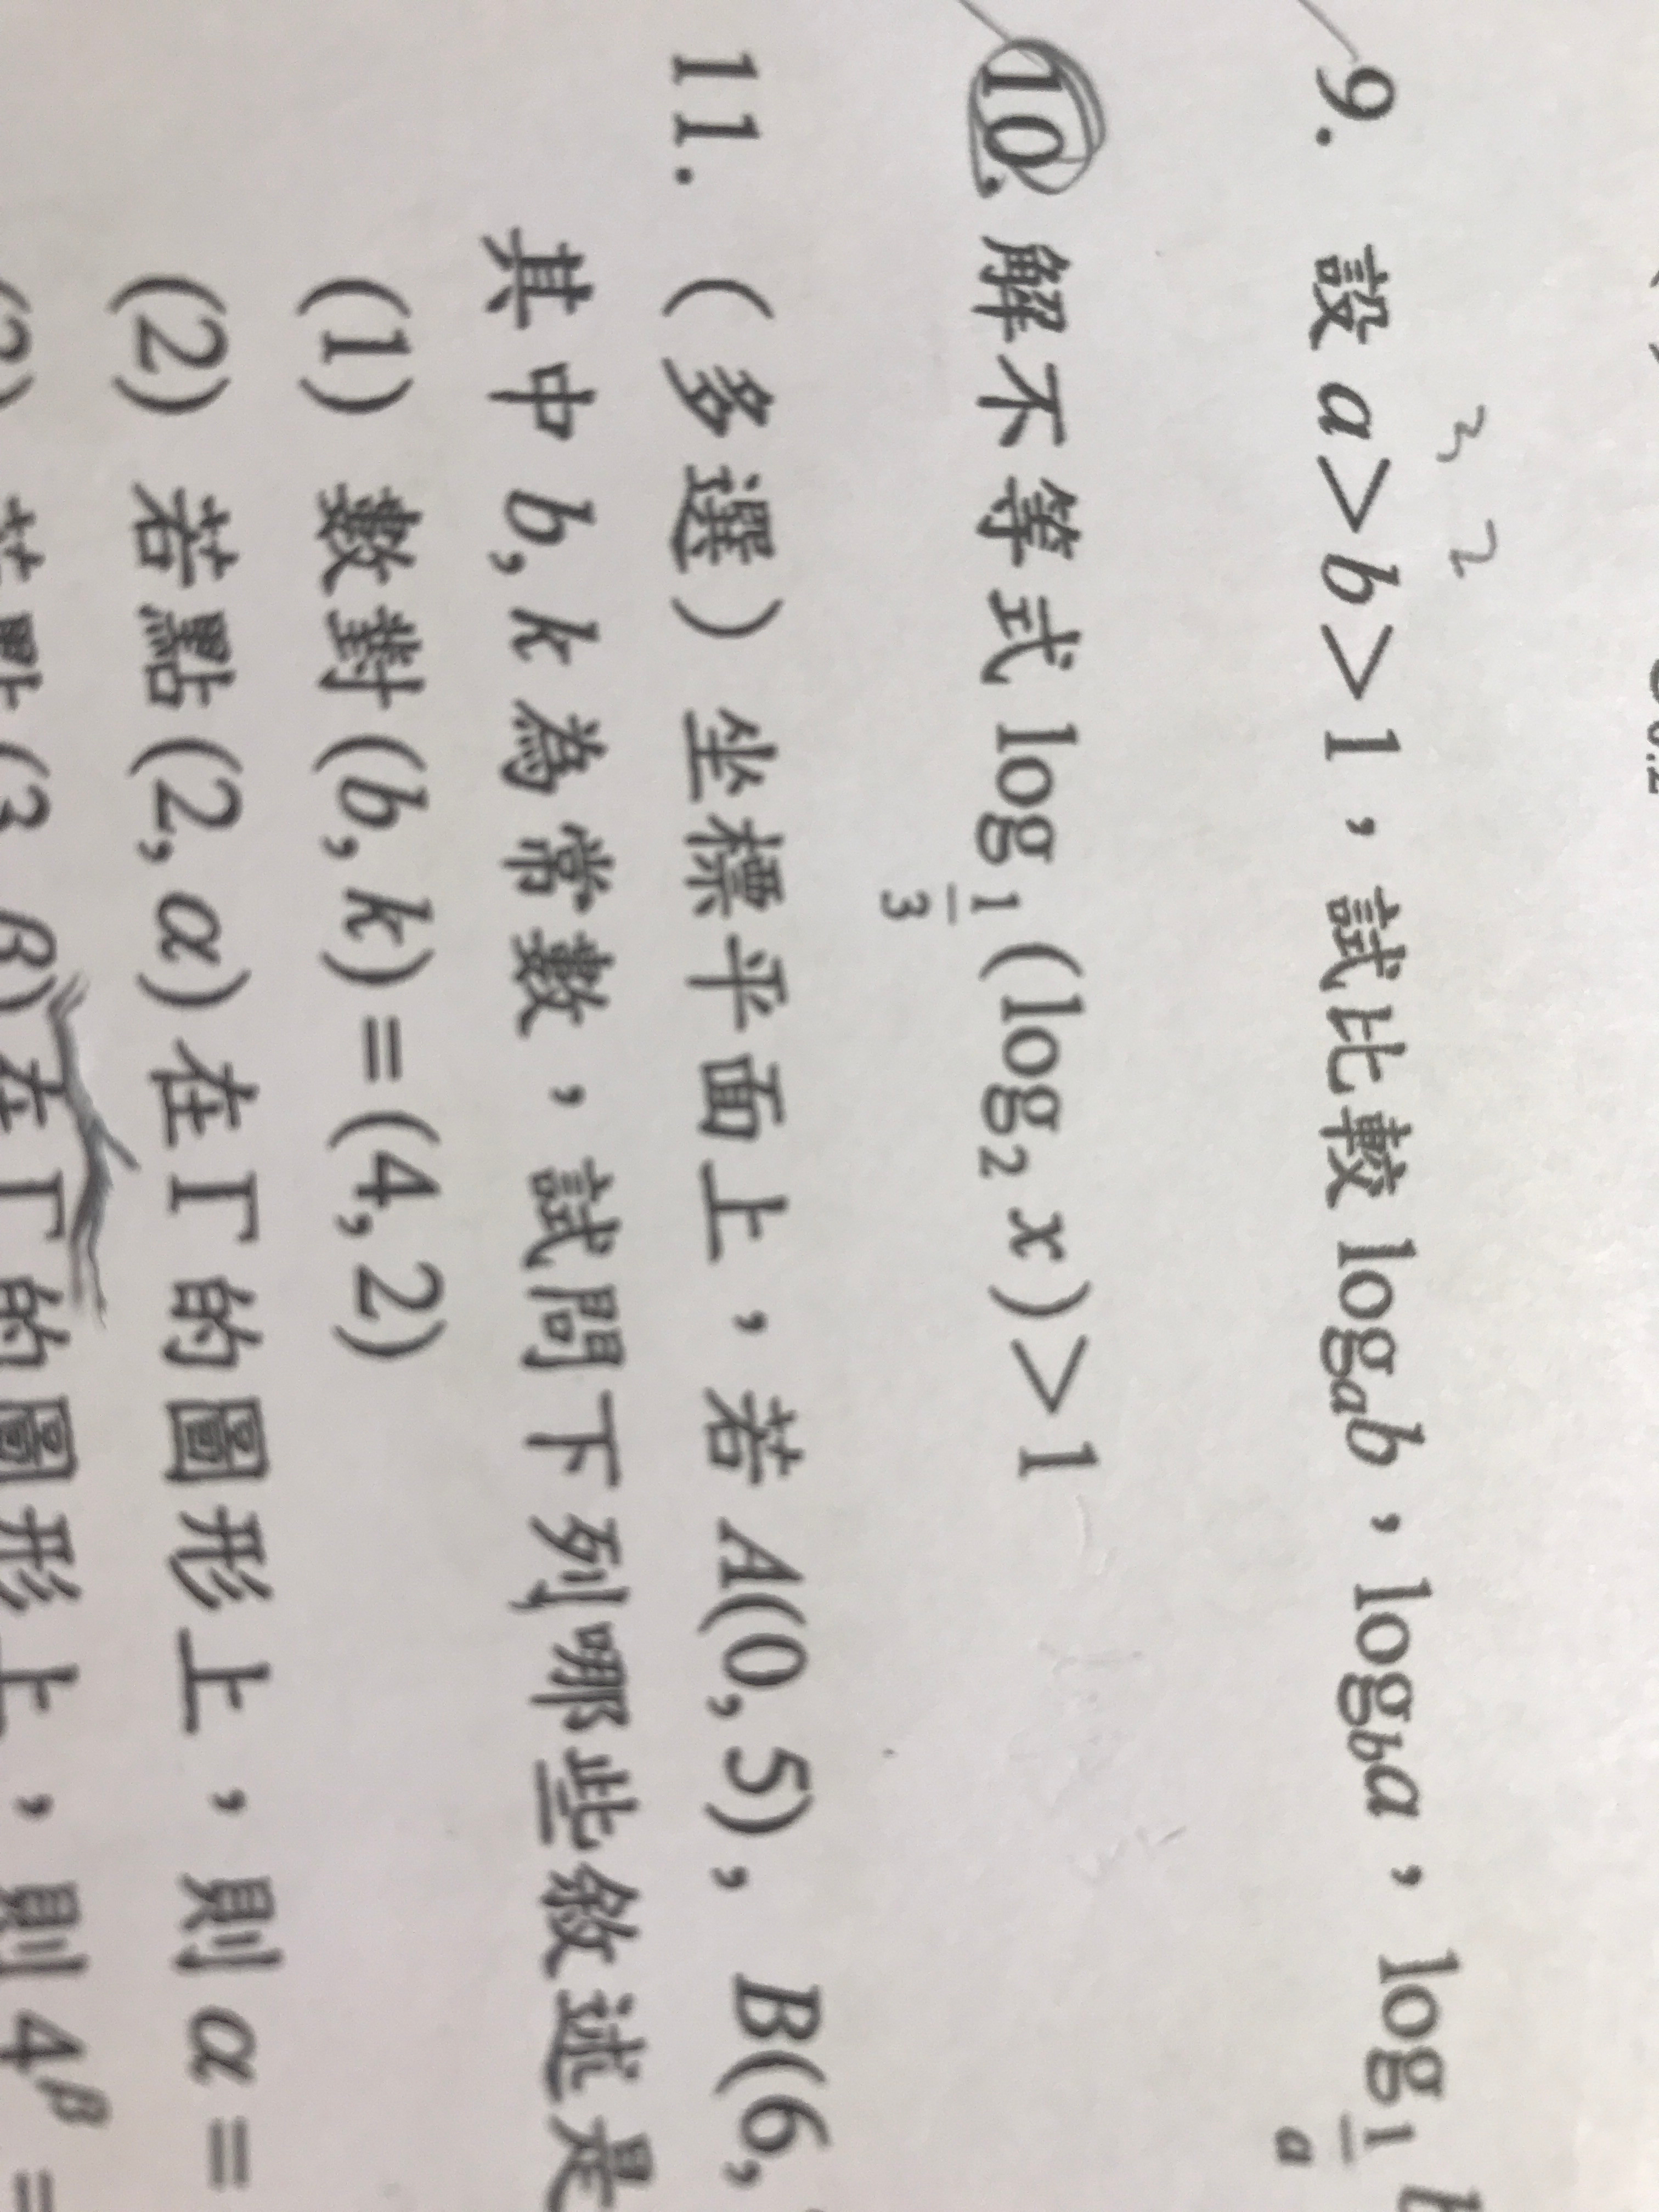 3, 2
9. 設 a>b>1，試比較 log_a b，log_b a，log_{1/a}
10. 解不等式 log_{1/3}(log_2 x)>1
11.（多選）坐標平面上，若 A(0, 5)，B(6,
其中 b, k 為常數，試問下列哪些敘述是
(1) 數對(b, k)=(4, 2)
(2) 若點(2, α)在Γ的圖形上，則 α=
若點(3, β)在Γ的圖形上，則 4^β =